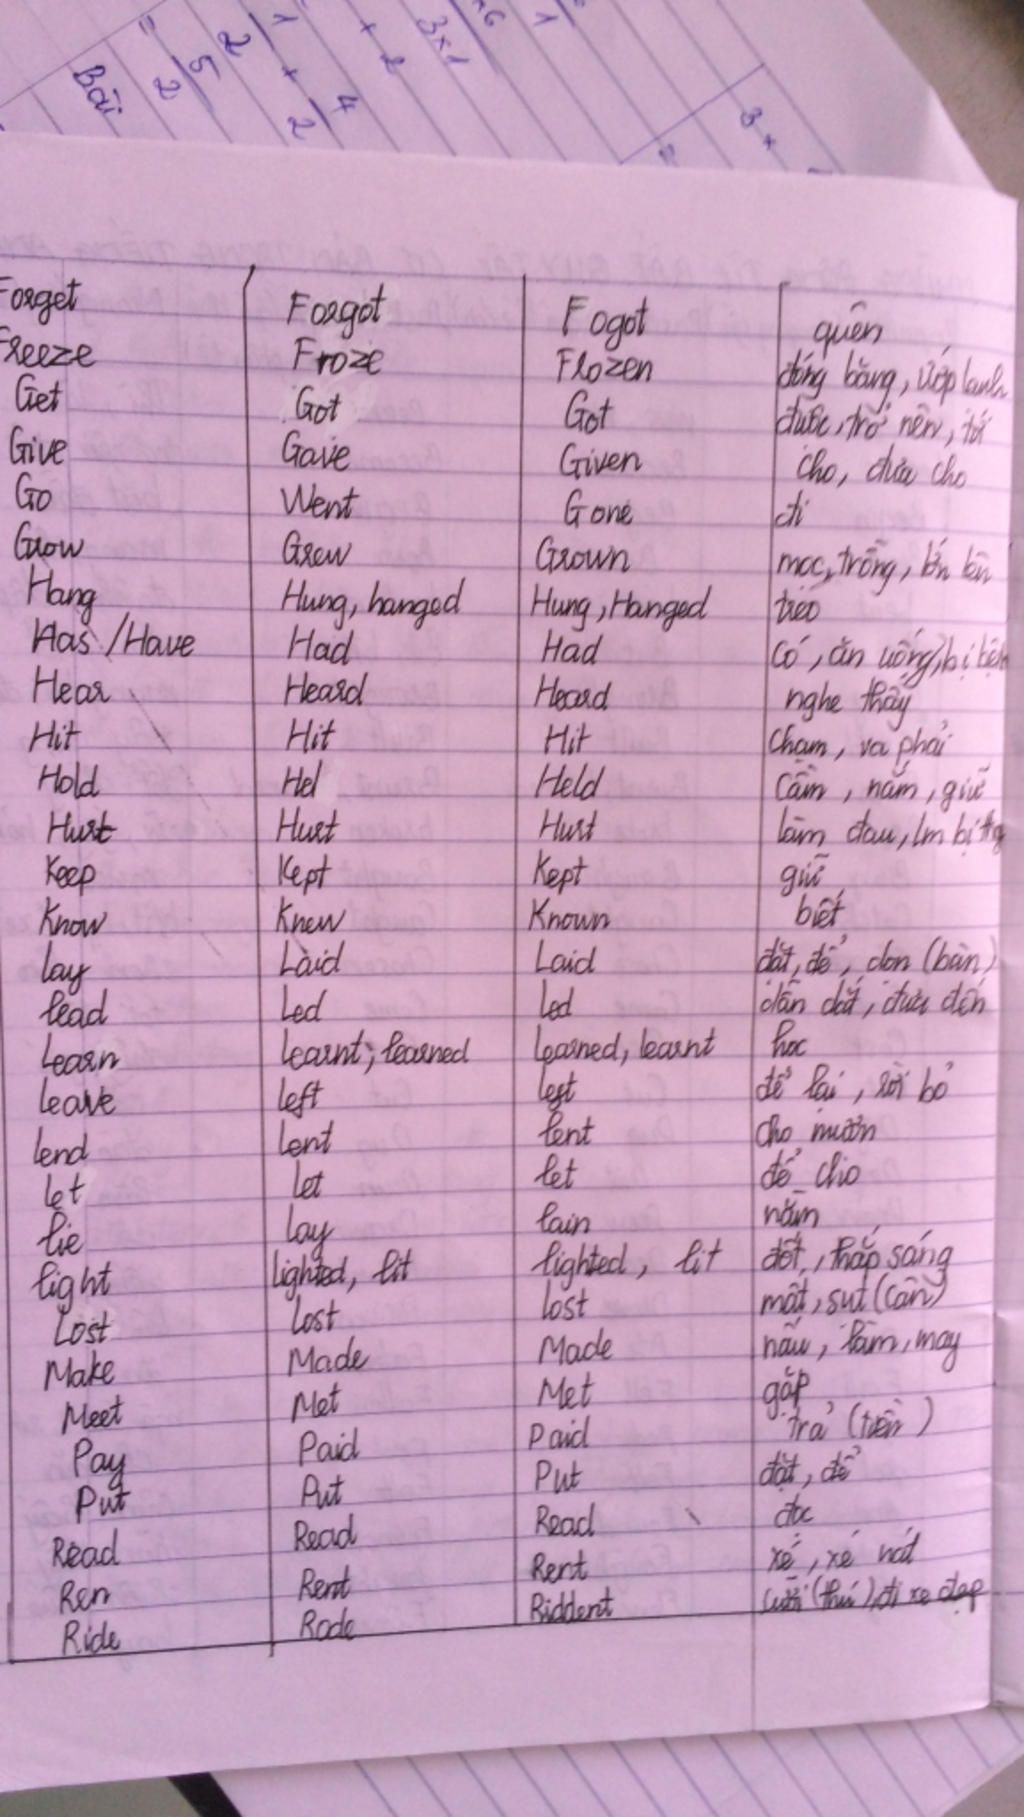 Bài
Forget Forgot Fogot quên
Freeze Froze Flozen đóng băng, ướp lạnh
Get Got Got được, trở nên, tới
Give Gave Given cho, đưa cho
Go Went Gone đi
Grow Grew Grown mọc, trồng, lớn lên
Hang Hung, hanged Hung, Hanged treo
Has / Have Had Had có, ăn uống, bị bệnh
Hear Heard Heard nghe thấy
Hit Hit Hit chạm, va phải
Hold Hel Held Cầm, nắm, giữ
Hurt Hurt Hurt làm đau, lm bị
Keep Kept Kept giữ
Know Knew Known biết
Lay Laid Laid đặt, để, dọn (bàn)
Lead Led Led dẫn dắt, đưa đến
Learn Learnt, learned Learned, learnt học
Leave Left Left để lại, rời bỏ
Lend Lent Lent cho mượn
Let Let Let để cho
Lie Lay Lain nằm
Light Lighted, lit lighted, lit đốt, thắp sáng
Lost Lost Lost mất, sut (cân)
Make Made Made nấu, làm, may
Meet Met Met gặp
Pay Paid Paid trả (tiền)
Put Put Put đặt, để
Read Read Read đọc
Ren Rent Rent xé, xé nát
Ride Rode Riddent cưỡi (thú), đi xe đạp